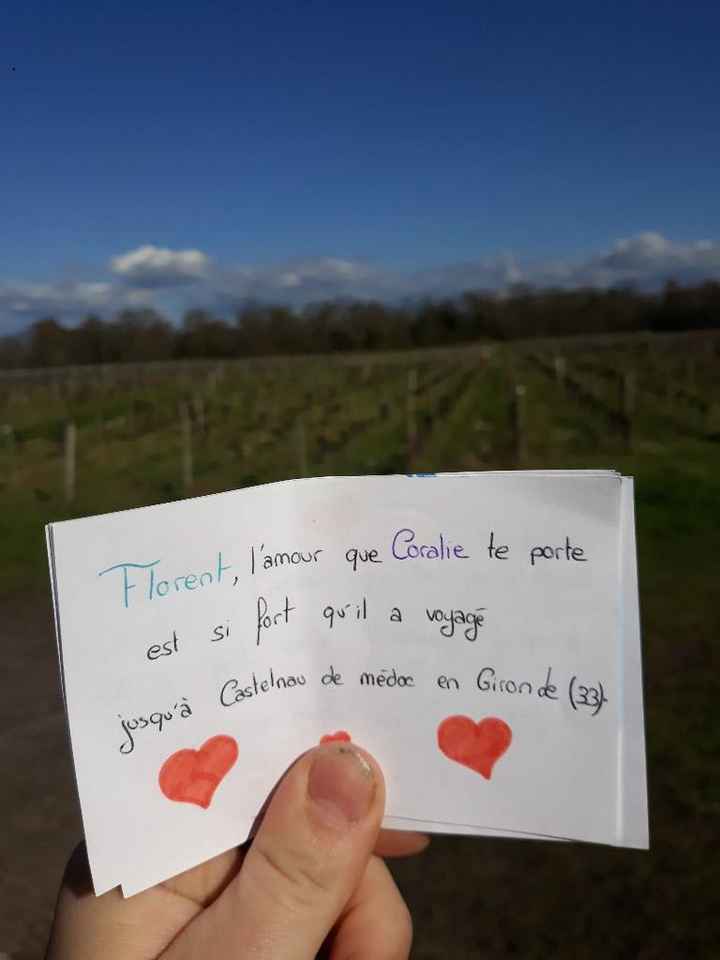 Florent, l'amour que Coralie te porte
est si fort qu'il a voyagé
jusqu'à Castelnau de médoc en Gironde (33)